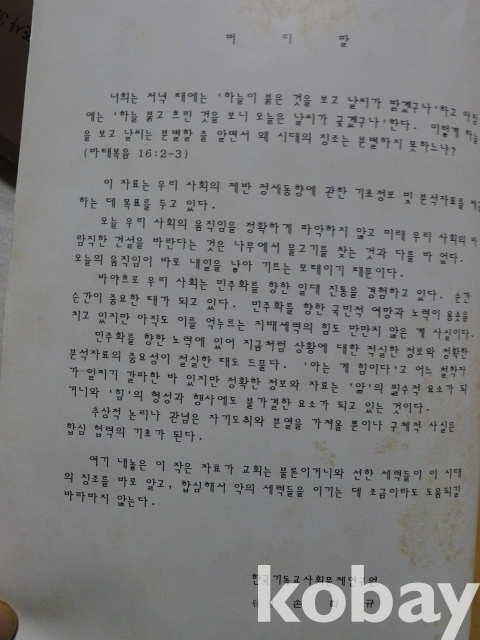 머 리 말
너희는 저녁 때에는 '하늘이 붉은 것을 보고 날씨가 맑겠구나'하고 아침
에는 '하늘 붉고 흐린 것을 보니 오늘은 날씨가 궂겠구나'한다. 이렇게 하늘
을 보고 날씨는 분별할 줄 알면서 왜 시대의 징조는 분별하지 못하느냐?
(마태복음 16:2-3)
이 자료는 우리 사회의 제반 정세동향에 관한 기초정보 및 분석자료를 제공
하는 데 목표를 두고 있다.
오늘 우리 사회의 움직임을 정확하게 파악하지 않고 미래 우리 사회의 바
람직한 건설을 바란다는 것은 나무에서 물고기를 찾는 것과 다를 바 없다.
오늘의 움직임이 바로 내일을 낳아 기르는 모태이기 때문이다.
바야흐로 우리 사회는 민주화를 향한 일대 진통을 경험하고 있다. 순간
순간이 중요한 때가 되고 있다. 민주화를 향한 국민적 여망과 노력이 용솟음
치고 있지만 아직도 이를 억누르는 지배세력의 힘도 만만치 않은 게 사실이다.
민주화를 향한 노력에 있어 지금처럼 상황에 대한 적실한 정보와 정확한
분석자료의 중요성이 절실한 때도 드물다. '아는 게 힘이다'고 어느 철학자
가 일찌기 갈파한 바 있지만 정확한 정보와 자료는 '앎'의 필수적 요소가 되
거니와 '힘'의 형성과 행사에도 불가결한 요소가 되고 있는 것이다.
추상적 논리나 관념은 자기도취와 분열을 가져올 뿐이나 구체적 사실은
합심 협력의 기초가 된다.
여기 내놓은 이 작은 자료가 교회는 물론이거니와 선한 세력들이 이 시대
의 징조를 바로 알고, 합심해서 악의 세력들을 이기는 데 조금이라도 도움되길
바라마지 않는다.
한국기독교사회문제연구원
손 학 규
kobay